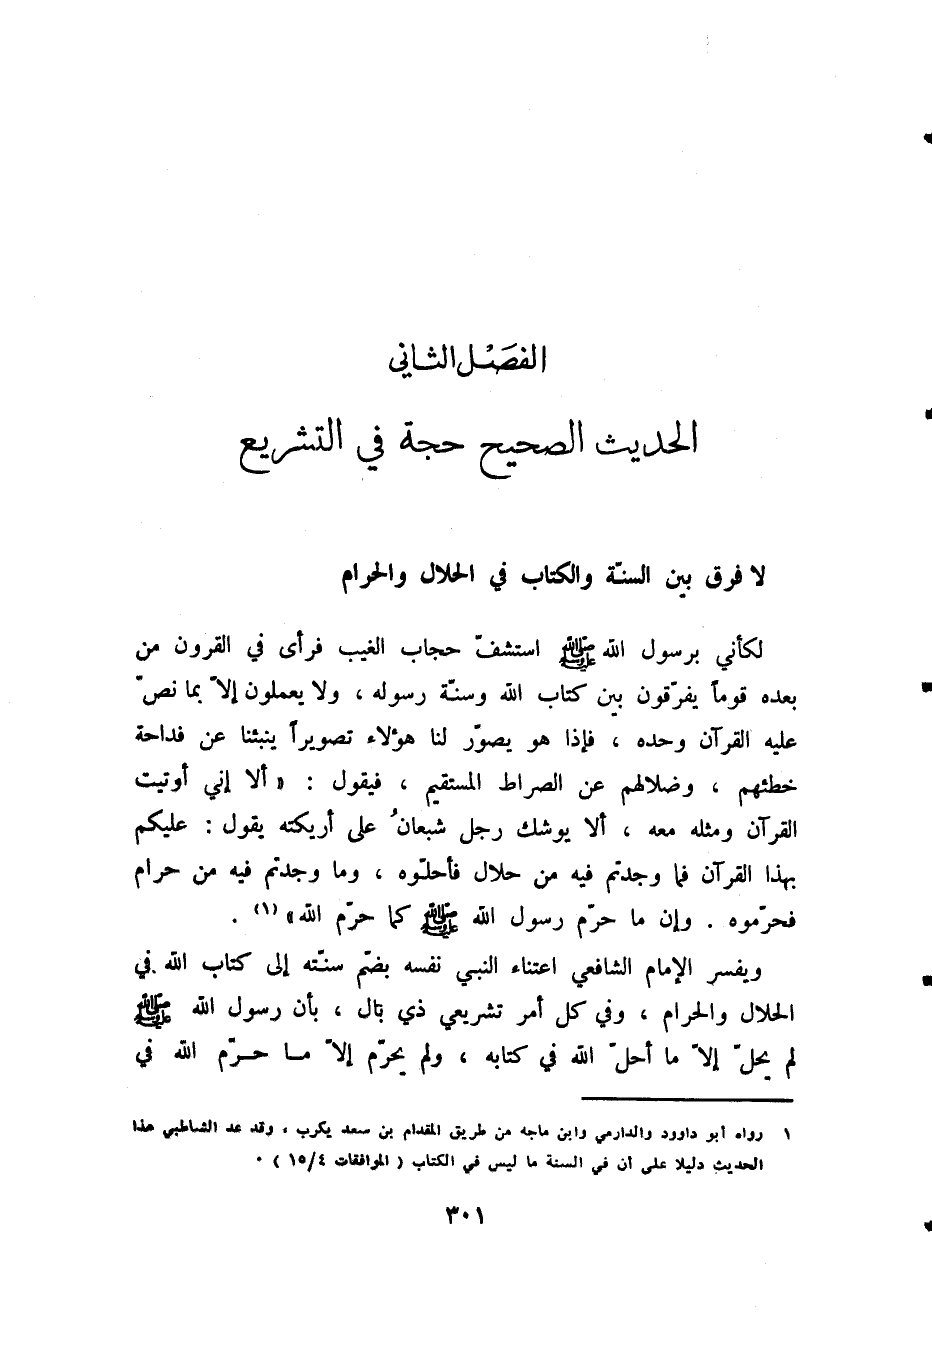 الفصَـْل الثـاني
الحديث الصحيح حجة في التشريع
لا فرق بين السنّة والكتاب في الحلال والحرام
لكأني برسول الله ﷺ استشفّ حجاب الغيب فرأى في القرون من
بعده قوماً يفرّقون بين كتاب الله وسنّة رسوله ، ولا يعملون إلاّ بما نصّ
عليه القرآن وحده ، فإذا هو يصوّر لنا هؤلاء تصويراً ينبئنا عن فداحة
خطئهم ، وضلالهم عن الصراط المستقيم ، فيقول : « ألا إني أوتيت
القرآن ومثله معه ، ألا يوشك رجل شبعانُ على أريكته يقول : عليكم
بهذا القرآن فما وجدتم فيه من حلال فأحلّوه ، وما وجدتم فيه من حرام
فحرّموه . وإن ما حرّم رسول الله ﷺ كما حرّم الله » (١) .
ويفسر الإمام الشافعي اعتناء النبي نفسه بضمّ سنّته إلى كتاب الله في
الحلال والحرام ، وفي كل أمر تشريعي ذي بال ، بأن رسول الله ﷺ
لم يحلّ إلاّ ما أحلّ الله في كتابه ، ولم يحرّم إلاّ مـا حـرّم الله في
١ رواه أبو داوود والدارمي وابن ماجه من طريق المقدام بن سعد يكرب ، وقد عد الشاطبي هذا
الحديث دليلا على أن في السنة ما ليس في الكتاب ( الموافقات ١٥/٤ ) ٠
٣٠١